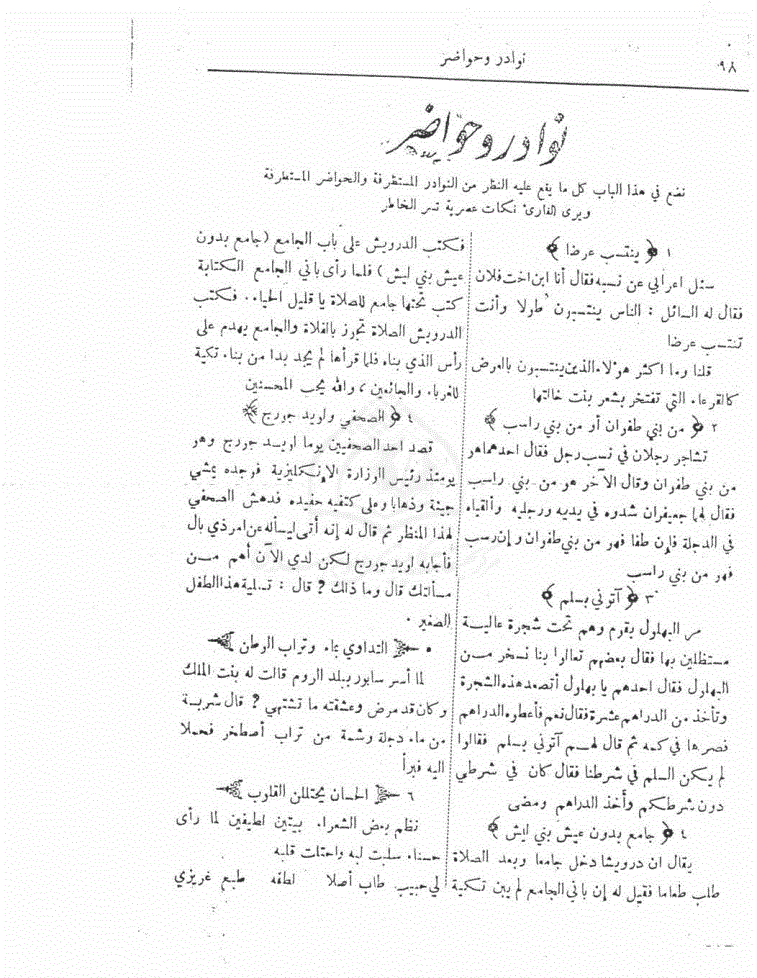 ٩٨
نوادر وحواضر
نوادر وحواضر
نضع في هذا الباب كل ما يقع عليه النظر من النوادر المستظرفة والحواضر المستطرفة
ويرى القارئ نكات عصرية تسر الخاطر
١ ﴿ ينتسب عرضا ﴾
سئل اعرابي عن نسبه فقال أنا ابن اخت فلان
فقال له السائل : الناس ينتسبون طولا وأنت
تنتسب عرضا
قلنا وما اكثر هؤلاء الذين ينتسبون بالعرض
كالقرعاء التي تفتخر بشعر بنت خالتها
٢ ﴿ من بني طفوان أو من بني راسب ﴾
تشاجر رجلان في نسب رجل فقال احدهما هو
من بني طفوان وقال الآخر هو من بني راسب
فقال لهما جعيفران شدوه في يديه ورجليه وألقياه
في الدجلة فإن طفا فهو من بني طفوان وإن رسب
فهو من بني راسب
٣ ﴿ آتوني بسلم ﴾
مر البهلول بقوم وهم تحت شجرة عالية
مستظلين بها فقال بعضهم تعالوا بنا نسخر من
البهلول فقال احدهم يا بهلول أتصعد هذه الشجرة
وتأخذ من الدراهم عشرة فقال نعم فأعطوه الدراهم
فصرها في كمه ثم قال لهم آتوني بسلم فقالوا
لم يكن السلم في شرطنا فقال كان في شرطي
دون شرطكم وأخذ الدراهم ومضى
٤ ﴿ جامع بدون عيش بني ليش ﴾
يقال ان درويشا دخل جامعا وبعد الصلاة
طلب طعاما فقيل له إن باني الجامع لم يبن تكية
فكتب الدرويش على باب الجامع (جامع بدون
عيش بني ليش) فلما رأى باني الجامع الكتابة
كتب تحتها جامع للصلاة يا قليل الحياء. فكتب
الدرويش الصلاة تجوز بالفلاة والجامع يهدم على
رأس الذي بناه فلما قرأها لم يجد بدا من بناء تكية
للغرباء والجائعين، والله يحب المحسنين
٤ ﴿ الصحفي ولويد جورج ﴾
قصد احد الصحفيين يوما لويد جورج وهو
يومئذ رئيس الوزارة الإنكليزية فوجده يمشي
جيئة وذهابا وعلى كتفيه حفيده فدهش الصحفي
لهذا المنظر ثم قال له إنه أتى ليسأله عن امر ذي بال
فأجابه لويد جورج لكن لدي الآن أهم من
مسألتك قال وما ذاك ? قال : تسلية هذا الطفل
الصغير .
٥ التداوي بماء وتراب الوطن
لما أسر سابور ببلد الروم قالت له بنت الملك
وكان قد مرض وعشقته ما تشتهي ? قال شربة
من ماء دجلة وشمة من تراب أصطخر فحملا
اليه فبرأ
٦ الحسان يحتللن القلوب
نظم بعض الشعراء بيتين لطيفين لما رأى
حسناء سلبت لبه واحتلت قلبه
لي حبيب طاب أصلا لطفه طبع غريزي